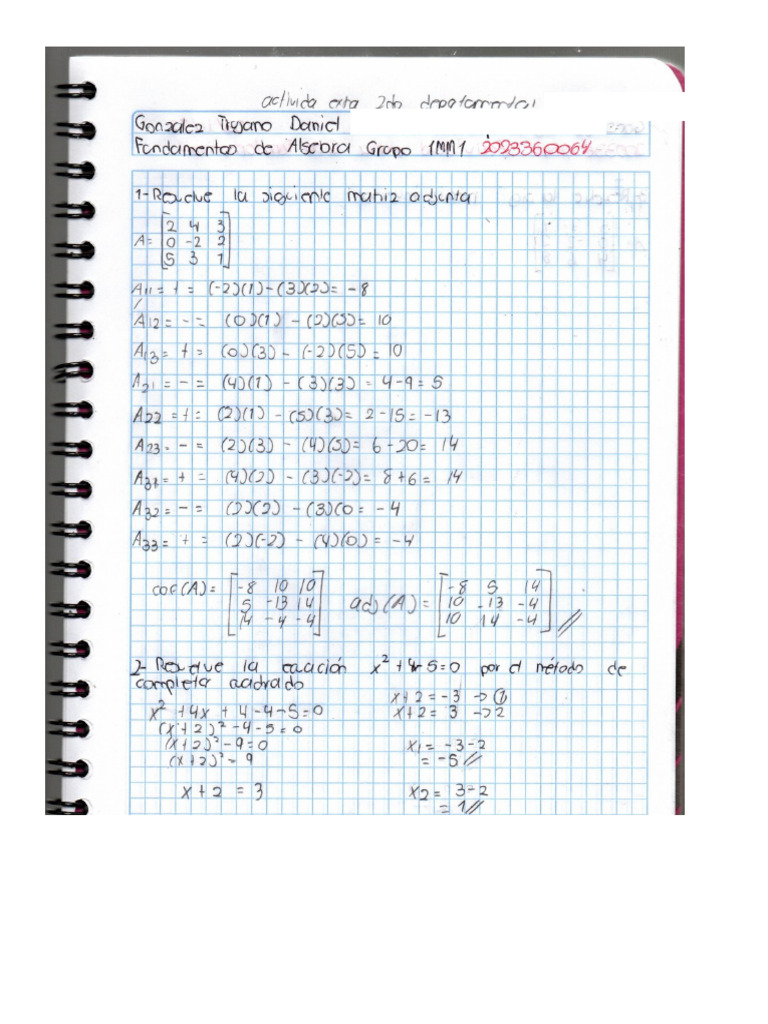 activida extra 2do departamental
Gonzalez Troyano Daniel
Fundamentos de Algebra Grupo 1MM1 2023360064
1-Resuelve la siguiente matriz adjunta
A= [2 4 3
0 -2 2
5 3 1]
A11 = + = (-2)(1)-(3)(2)= -8
A12 = - = (0)(1) - (2)(5)= 10
A13 = + = (0)(3) - (-2)(5) = 10
A21 = - = (4)(1) - (3)(3) = 4-9 = 5
A22 = + = (2)(1) - (5)(3)= 2-15 = -13
A23 = - = (2)(3) - (4)(5) = 6-20= 14
A31 = + = (4)(2) - (3)(-2) = 8+6 = 14
A32 = - = (2)(2) - (3)(0 = -4
A33 = + = (2)(-2) - (4)(0) = -4
cof(A)= [-8 10 10
5 -13 14
14 -4 -4]
adj(A) = [-8 5 14
10 -13 -4
10 14 -4]
2- Resuelve la ecuación x² + 4x - 5 = 0 por el método de
completa cuadrado
x² + 4x + 4-4-5=0
(x + 2)² -4-5=0
(x+2)² -9=0
(x+2)² = 9
x+2 = 3
x+2 = -3 -> 1
x+2 = 3 -> 2
x1 = -3-2
= -5
x2 = 3-2
= 1